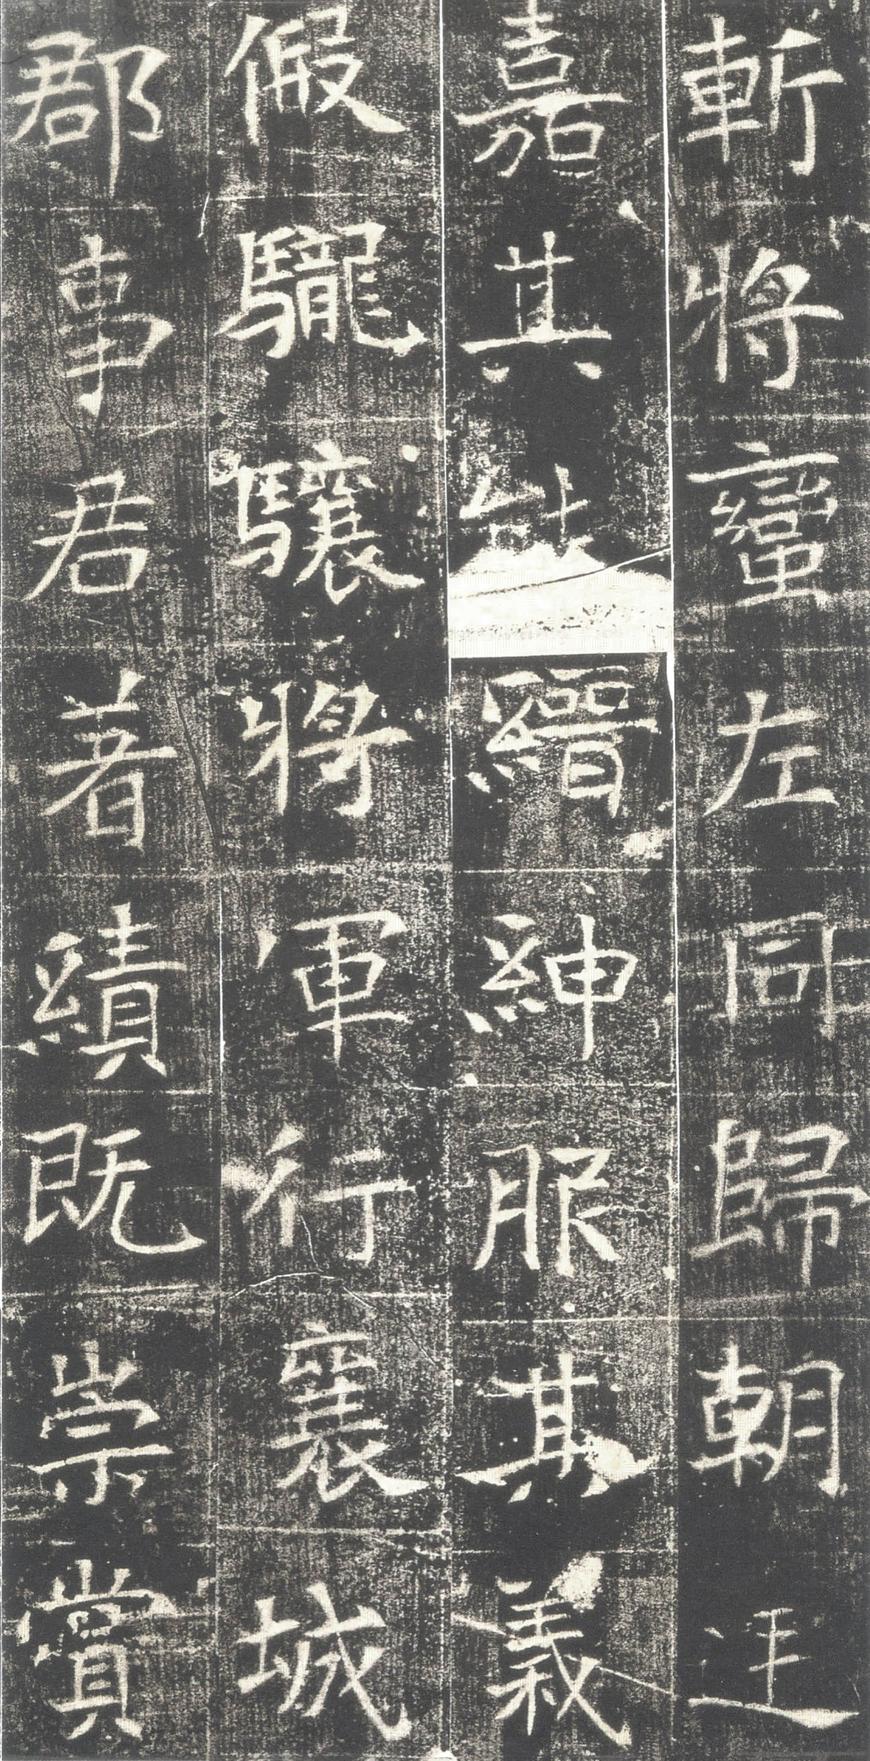 斬將蠻左同歸朝廷
嘉其縉紳服其義
假驡驤將軍行襄城
郡事君著績既崇賞